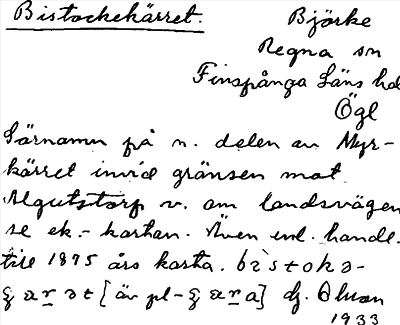 Bistockekärret.
Björke
Regna sn
Finspånga Läns hd
Ögl
Särnamn på n. delen av Myr-
kärret invid gränsen mot
Algutstorp v. om landsvägen
se ek.-kartan. Även enl. handl.
till 1875 års karta.
[äv pl-
1933